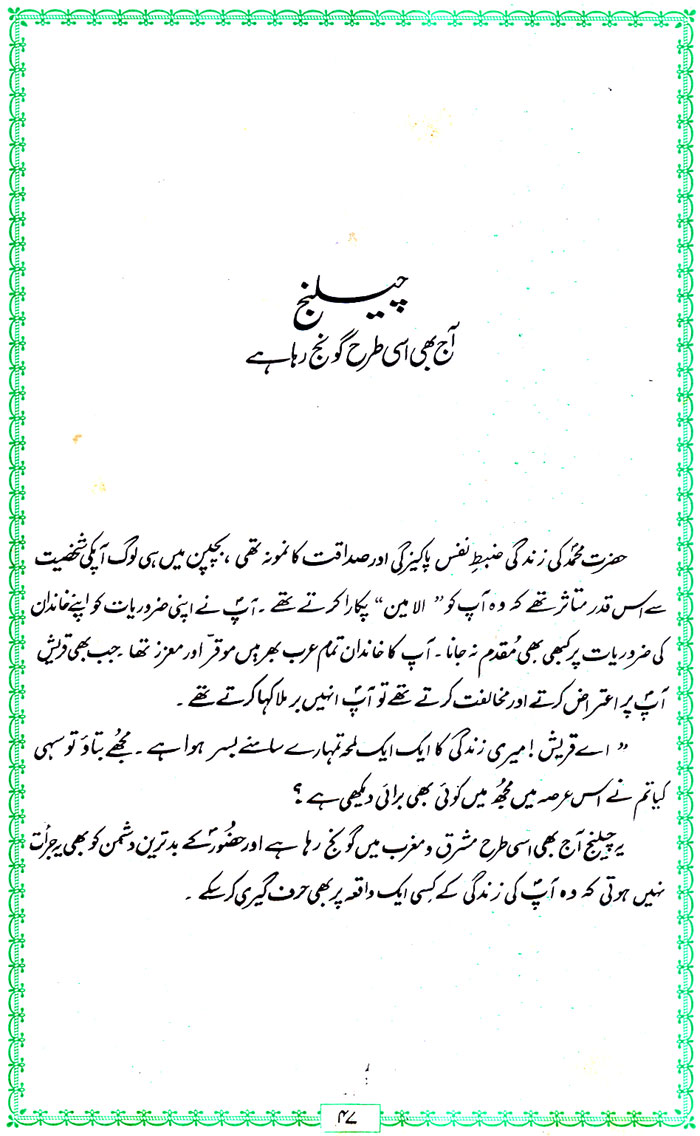 چیلنج
آج بھی اسی طرح گونج رہا ہے
حضرت محمدؐ کی زندگی ضبطِ نفس پاکیزگی اور صداقت کا نمونہ تھی ، بچپن میں ہی لوگ آپکی شخصیت
سے اس قدر متاثر تھے کہ وہ آپ کو ” الامین “ پکارا کرتے تھے ۔ آپؐ نے اپنی ضروریات کو اپنے خاندان
کی ضروریات پر کبھی بھی مُقدم نہ جانا ۔ آپ کا خاندان تمام عرب بھر میں موقر اور معزز تھا ۔ جب بھی قریش
آپؐ پر اعتراض کرتے اور مخالفت کرتے تھے تو آپؐ انہیں برملا کہا کرتے تھے ۔
” اے قریش ! میری زندگی کا ایک ایک لمحہ تمہارے سامنے بسر ہوا ہے ۔ مجھے بتاؤ تو سہی
کیا تم نے اس عرصہ میں مجھ میں کوئی بھی برائی دیکھی ہے ؟
یہ چیلنج آج بھی اسی طرح مشرق و مغرب میں گونج رہا ہے اور حضُورؐ کے بدترین دشمن کو بھی یہ جرأت
نہیں ہوتی کہ وہ آپؐ کی زندگی کے کِسی ایک واقعہ پر بھی حرف گیری کر سکے ۔
۴۷